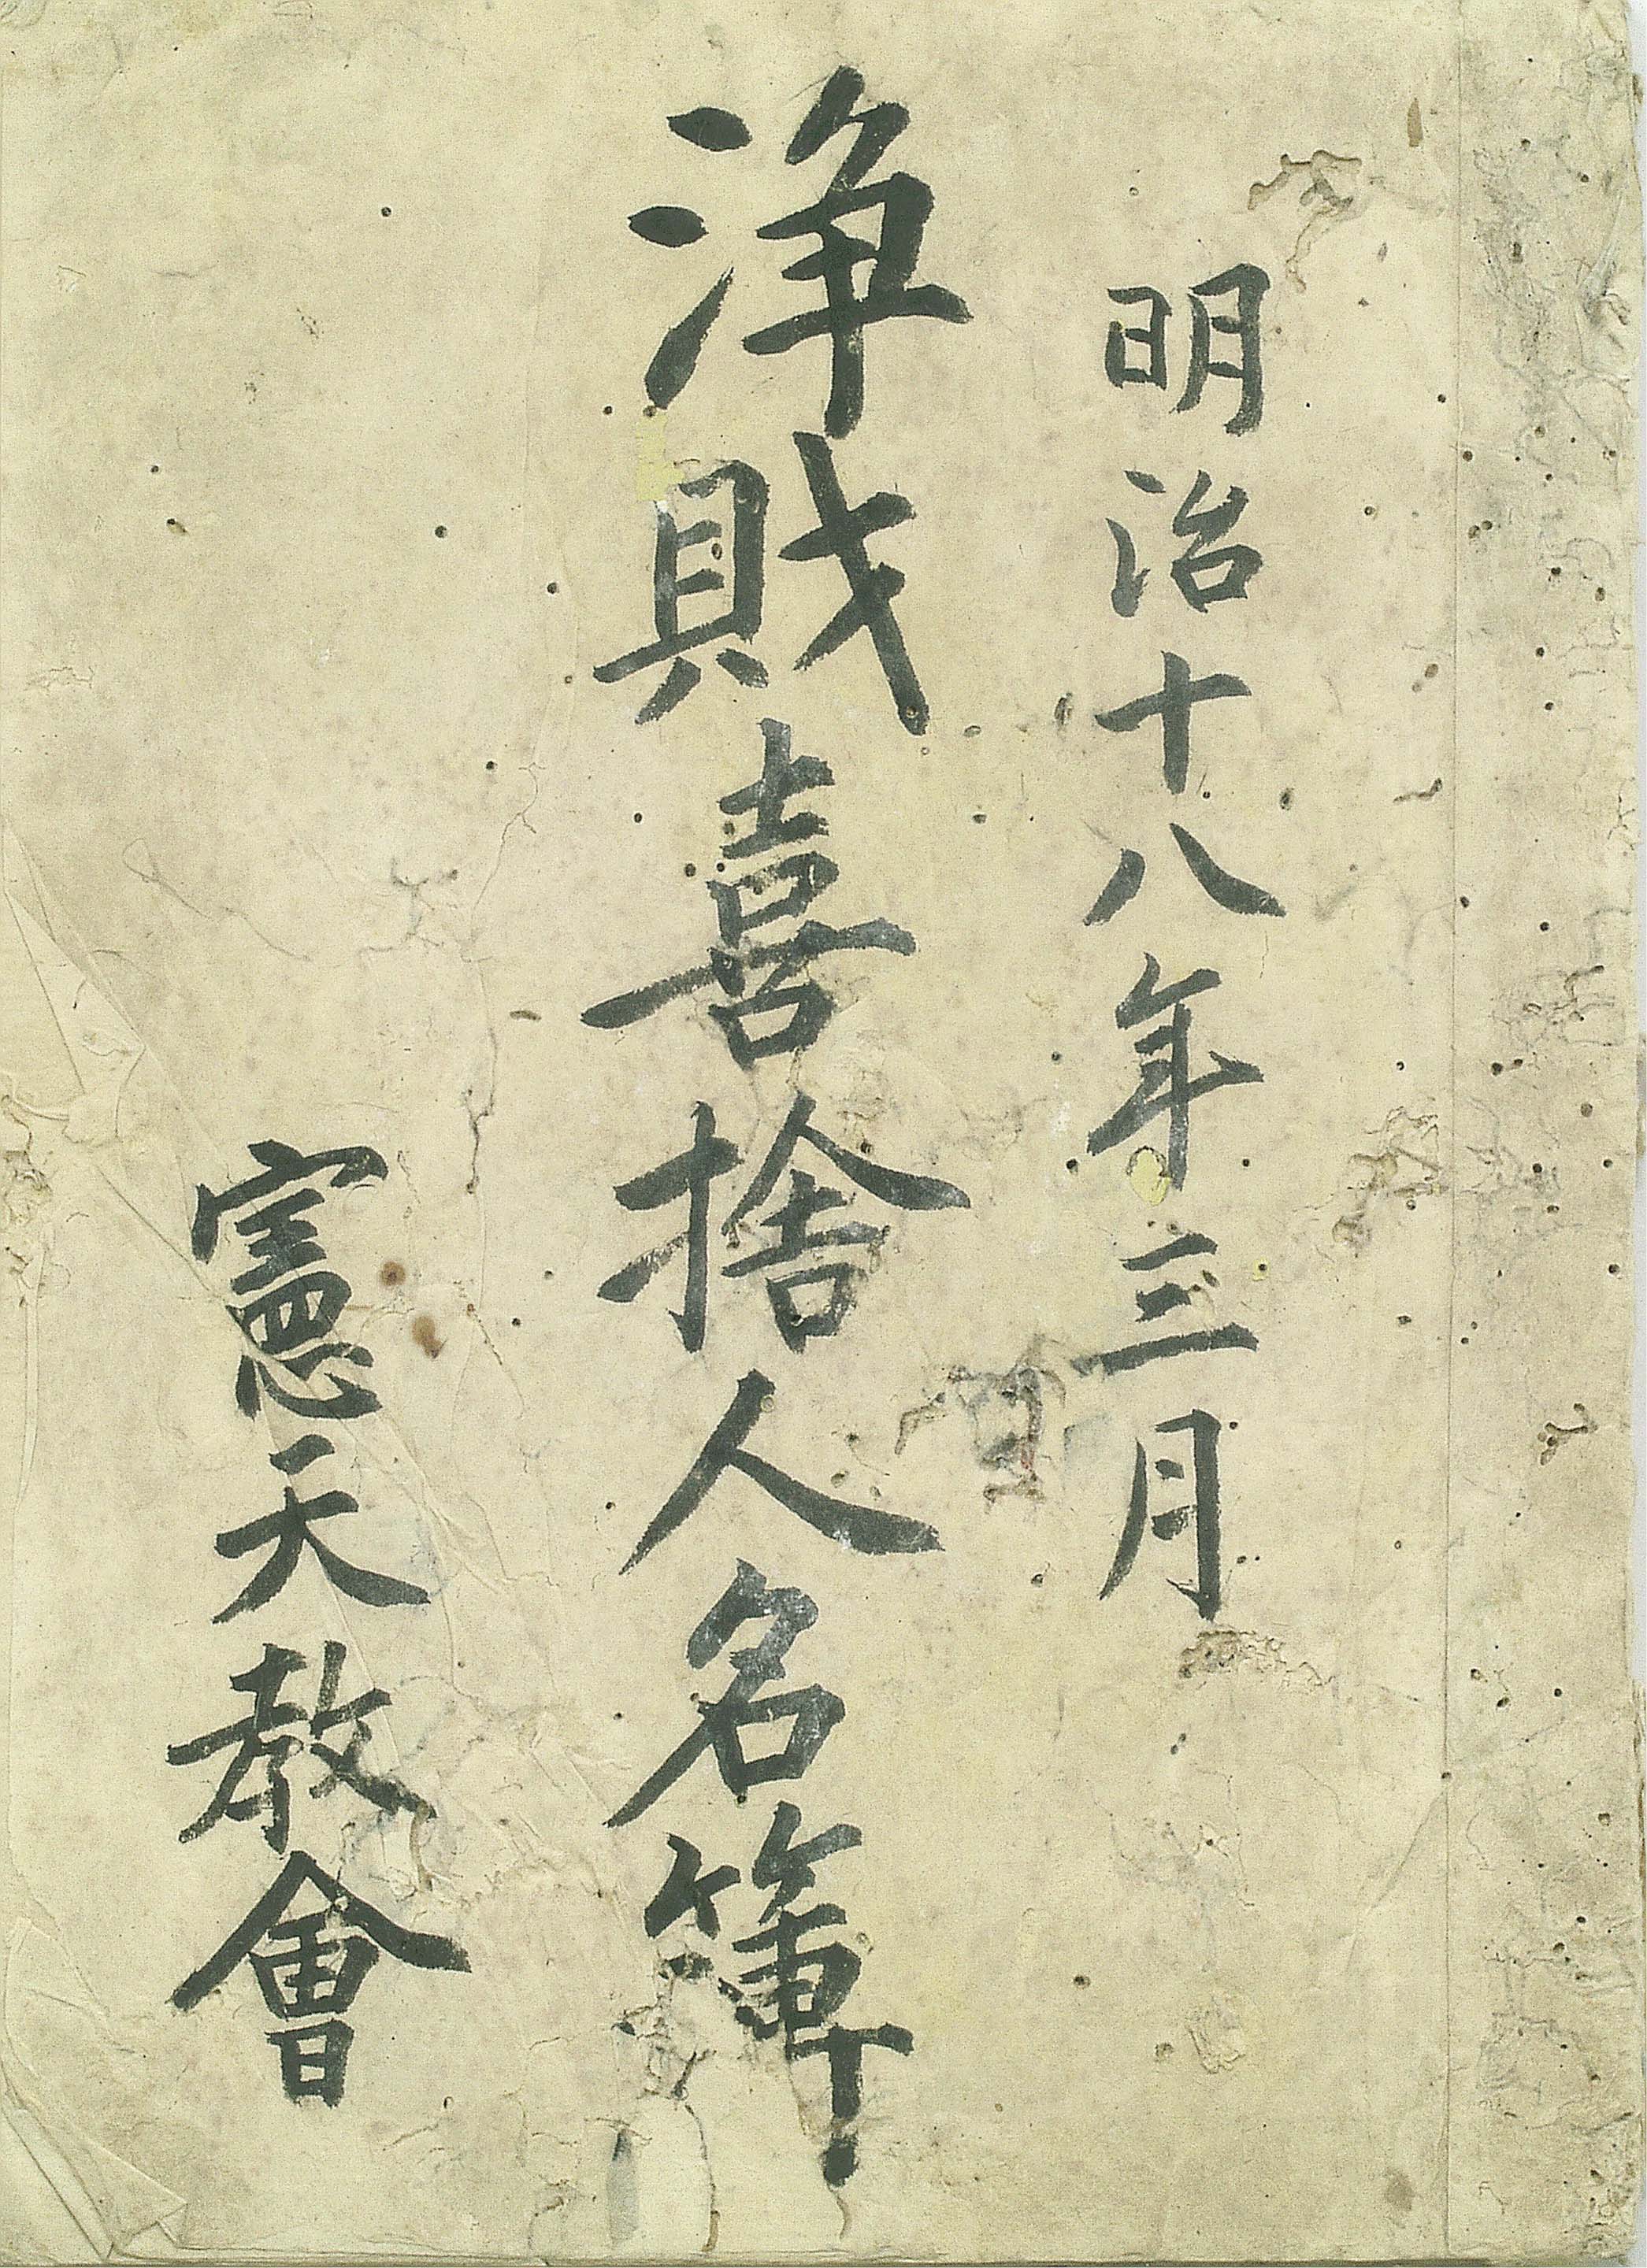 明治十八年三月
浄財喜捨人名簿
憲天教會